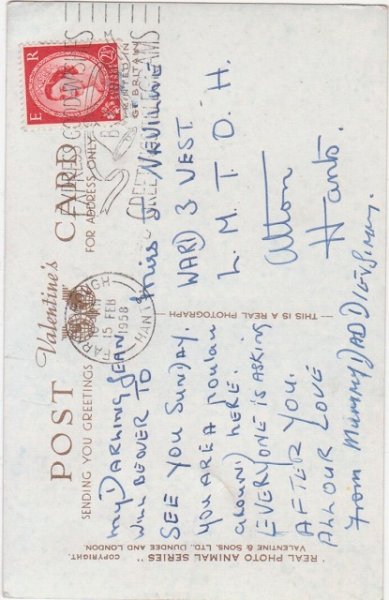 POST CARD
Valentine's
SENDING YOU GREETINGS
FOR ADDRESS ONLY
PRINTED IN
GT BRITAIN
E R
2½
EXPRESS GOOD WISHES
BY
GREETINGS TELEGRAMS
FARNBOROUGH
15 FEB
1958
HANTS
my DARLING JEAN
WILL BE OVER TO
SEE YOU SUNDAY.
YOU ARE A
around here.
EVERYONE IS ASKING
AFTER YOU.
ALL OUR LOVE
From Mummy DADDIE
Miss J NEVILLE
WARD 3 VEST.
L. M. T. D. H.
Alton
Hants.
— THIS IS A REAL PHOTOGRAPH —
"REAL PHOTO ANIMAL SERIES" COPYRIGHT.
VALENTINE & SONS, LTD., DUNDEE AND LONDON.